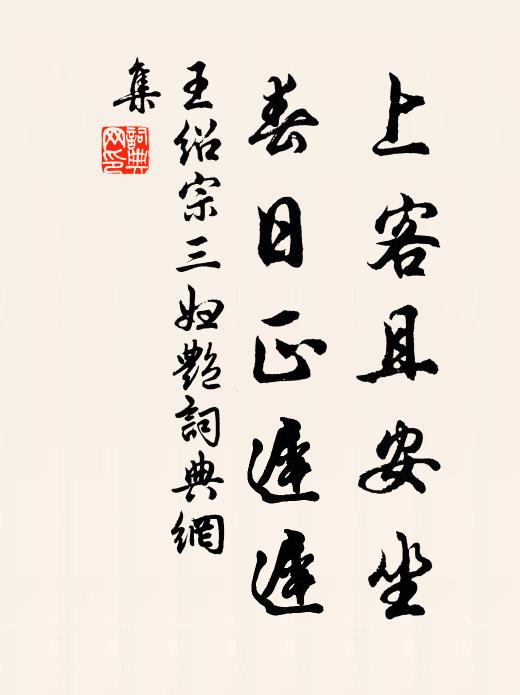 上客且安坐
春日正遲遲
王紹宗三婦艷詞典網
集
詞典網印